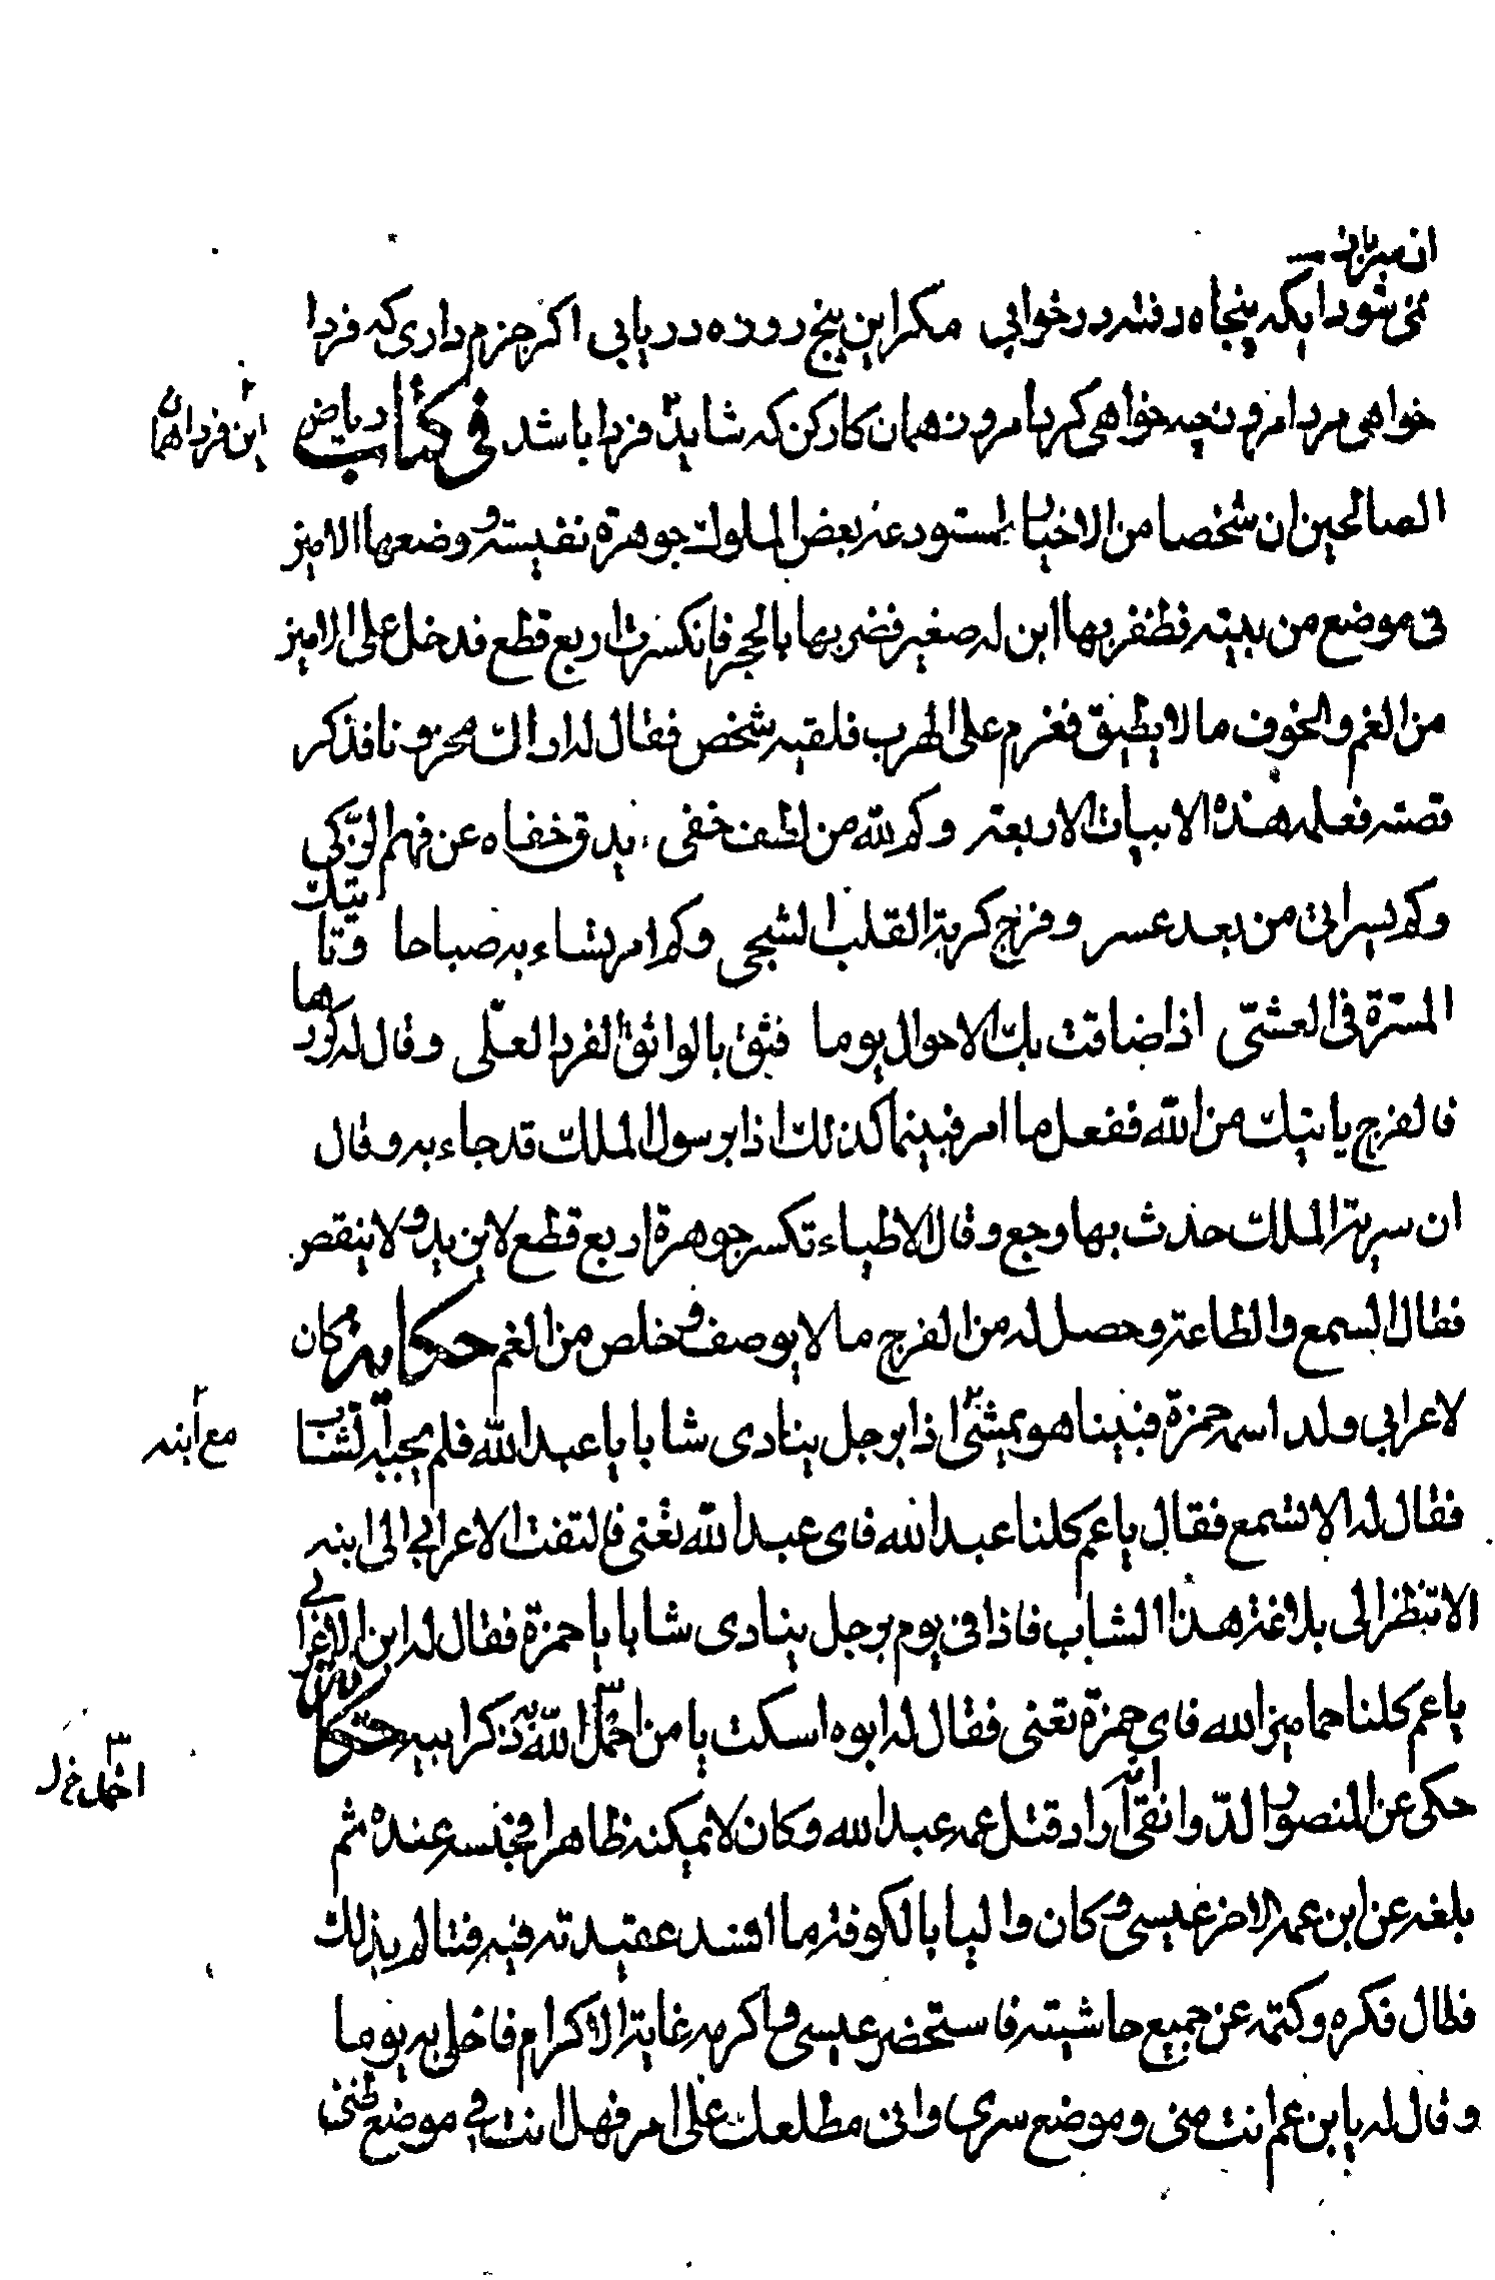 نمی شود ایکه پنجاه رفت و در خوابی مکر این پنج روزه دریابی اکر جزم داری که فردا
خواهی مرد امروز چه خواهی کرد امروز همان کار کن که شاید فردا باشد فی کتاب ریاض
این فردا همان
الصالحین ان شخصا من الاخیار استودعه بعض الملوک جوهرة نفیسة و وضعها الامیز
فی موضع من بیته فظفر بها ابن له صغیر فضربها بالحجر فانکسرت اربع قطع فدخل علی الامیز
من الغم والخوف ما لا یطیق فعزم علی الهرب فلقیه شخص فقال له اراک محزونا فذکر
قصته فعلمه هذه الابیات الاربعة وکم لله من لطف خفی یدق خفاه عن فهم الزکی
وکم یسر اتی من بعد عسر وفرج کربة القلب الشجی وکم امر تساء به صباحا وتاتیک
المسرة فی العشی اذا ضاقت بک الاحوال یوما فثق بالواثق الفرد العلی وقال له کررها
فالفرج یاتیک من الله ففعل ما امر فبینما کذلک اذا برسول الملک قد جاء به وقال
ان سریة الملک حدث بها وجع وقال الاطباء تکسر جوهرة اربع قطع لا یزید ولا ینقص
فقال السمع والطاعة وحصل له من الفرج ما لا یوصف وخلص من الغم حکایة کان
لاعرابی ولد اسمه حمزة فبینا هو یمشی اذا برجل ینادی شابا یا عبد الله فلم یجبه الشاب
مع ابنه
فقال له الا تسمع فقال یا عم کلنا عبد الله فای عبد الله تعنی فالتفت الاعرابی الی ابنه
الا تنظر الی بلاغة هذا الشاب فاذا فی یوم برجل ینادی شابا یا حمزة فقال له ابن الاعرابی
یا عم کلنا حمامیز الله فای حمزة تعنی فقال له ابوه اسکت یا من اخمل الله به ذکر ابیه حکایة
اخمل خ ل
حکی عن المنصور الدوانقی انه اراد قتل عمه عبد الله وکان لا یمکنه ظاهرا فحبسه عنده ثم
بلغه عن ابن عمه الاخر عیسی وکان والیا بالکوفة ما افسد عقیدته فیه فتالم بذلک
فطال فکره وکتمه عن جمیع حاشیته فاستحضر عیسی واکرمه غایة الاکرام فاخلی به یوما
وقال له یا بن عم انت منی وموضع سری وانی مطلعک علی امر فهل انت فی موضع ظنی